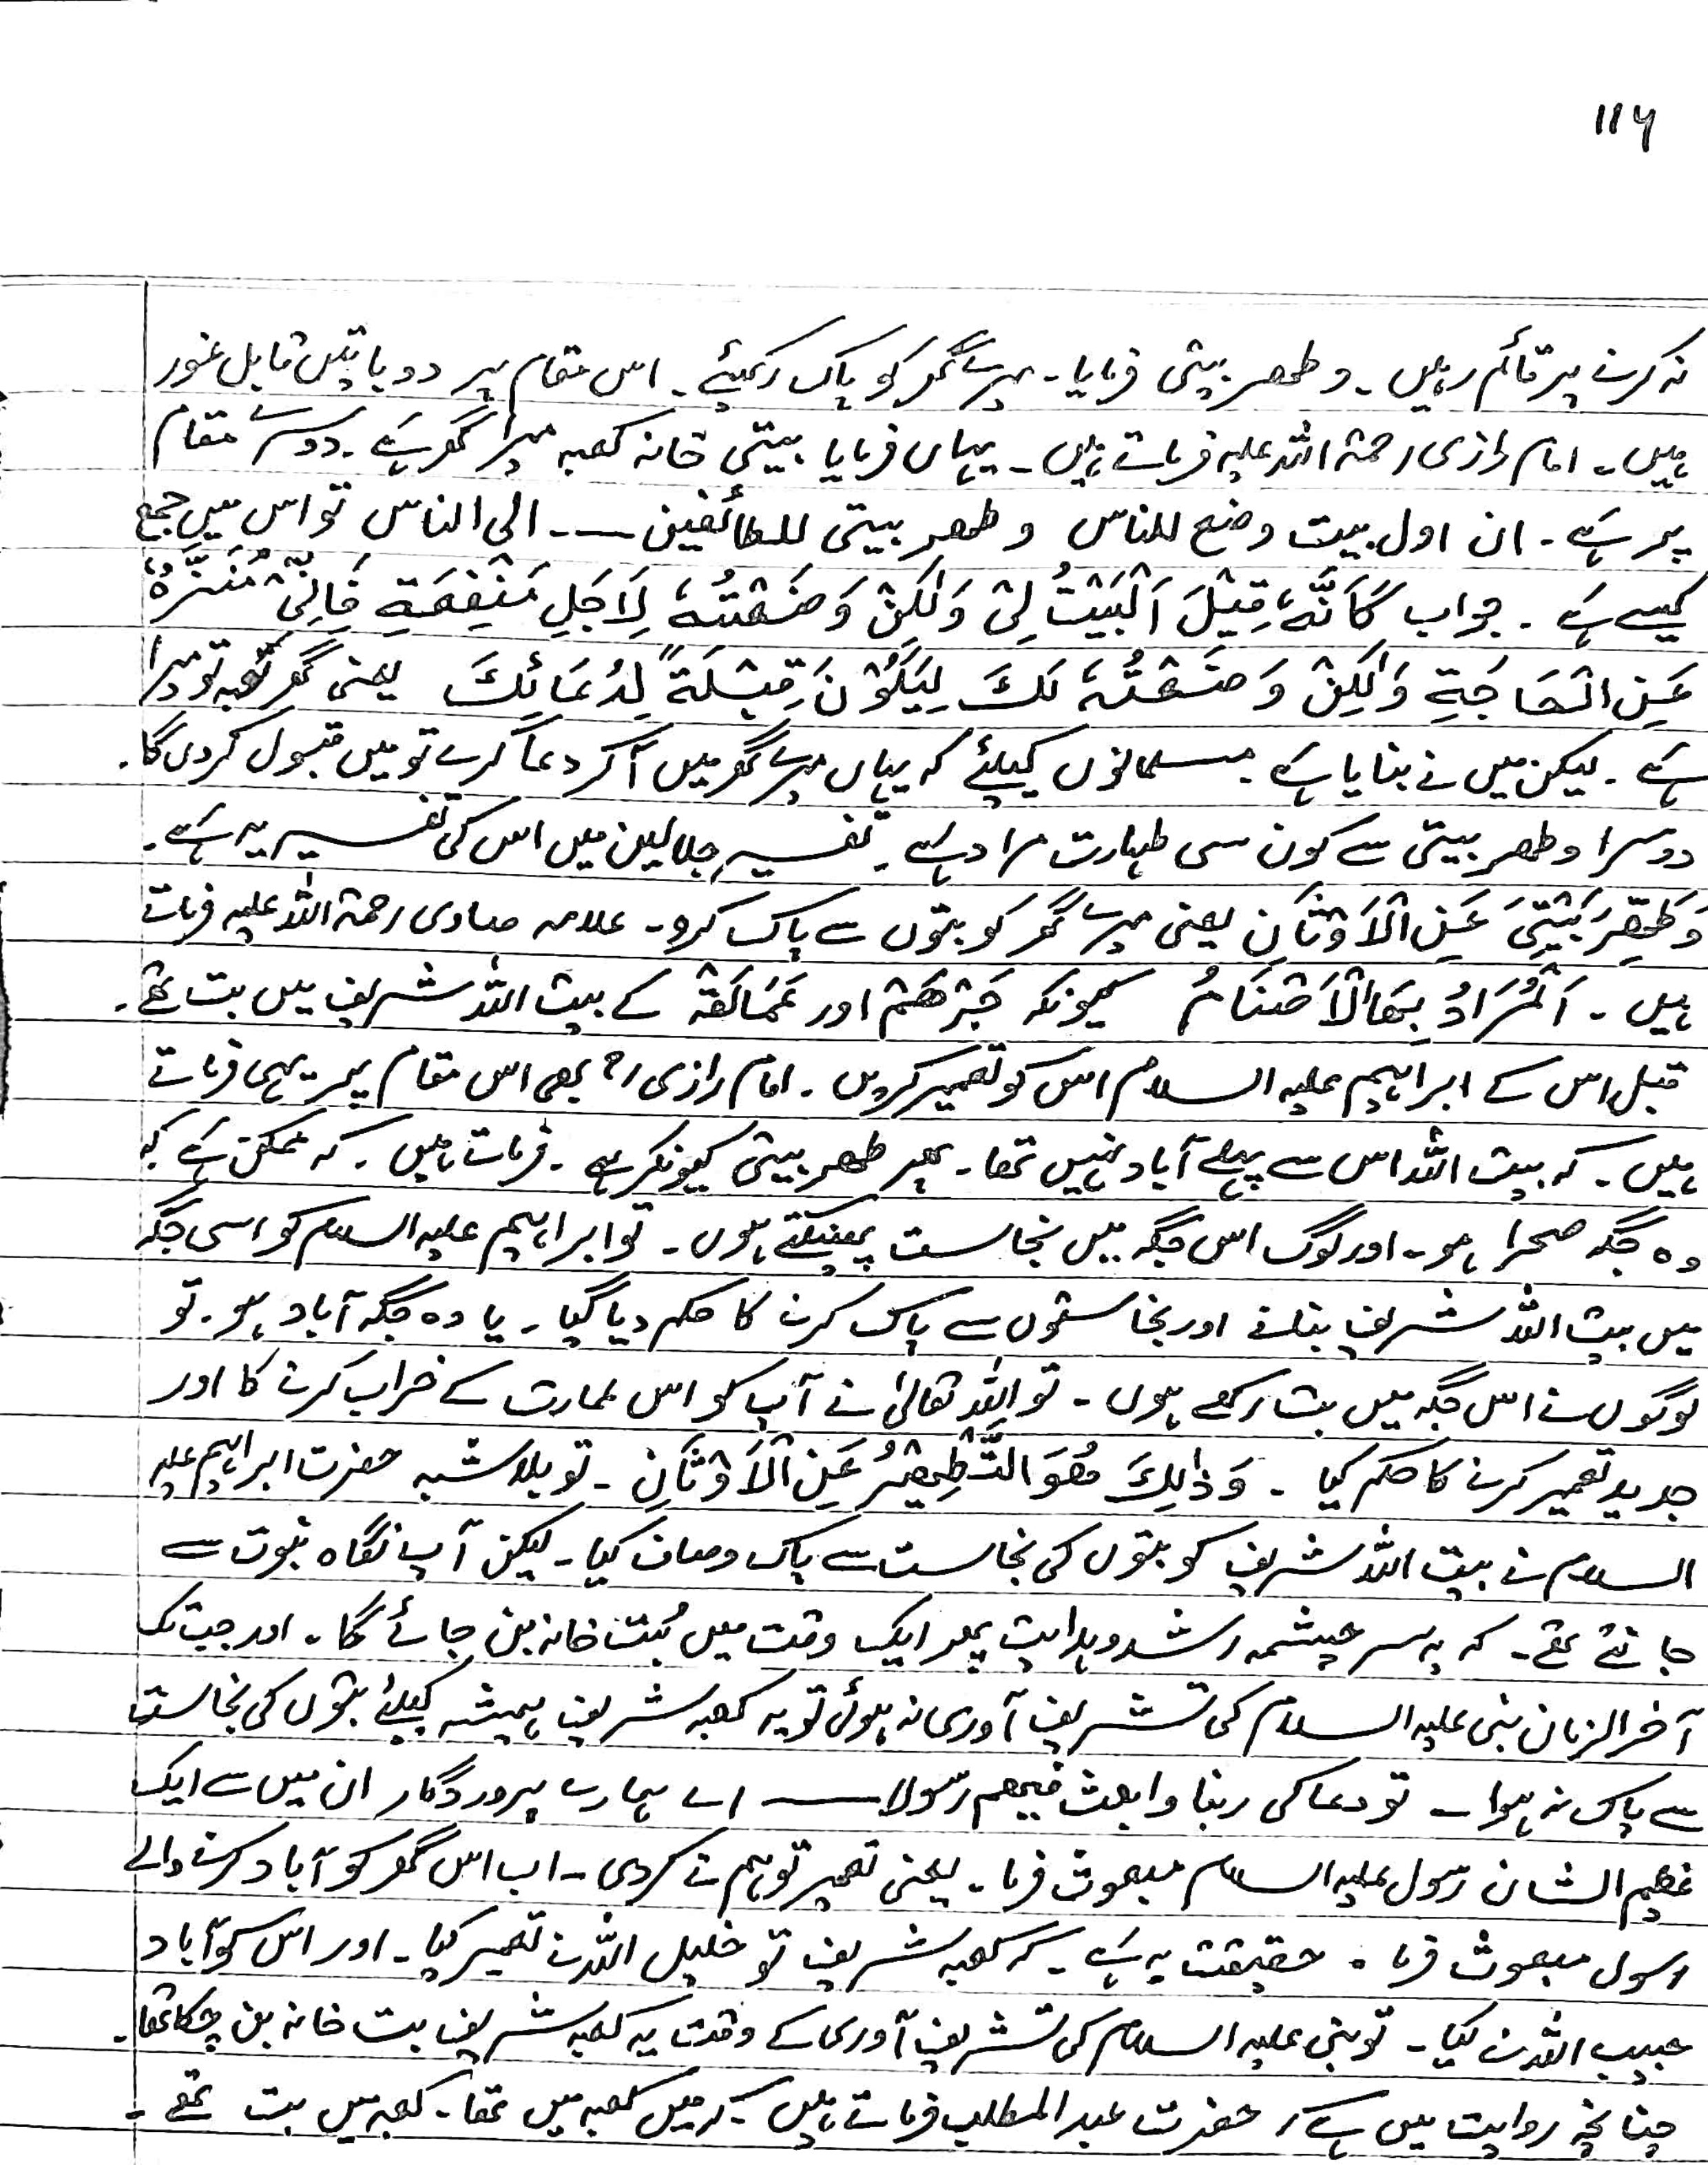 ۱۱۶
نہ کرنے پر قائم رہیں۔ وطھر بیتی فرمایا۔ میرے گھر کو پاک رکھیئے۔ اس مقام پر دو باتیں قابل غور
ہیں۔ امام رازی رحمۃ اللہ علیہ فرماتے ہیں۔ یہاں فرمایا بیتی خانہ کعبہ میرا گھر ہے۔ دوسرے مقام
پر ہے۔ ان اول بیت وضع للناس وطھر بیتی للطائفین ـــ۔ الی الناس تو اس میں جمع
کیسے ہے۔ جواب كَاَنَّهٗ قِيْلَ اَلْبَيْتُ لِيْ وَلٰكِنْ وَضَعْتُهٗ لِاَجَلِ مَنْفِعَةِ فَاِنِّيْ مُنَزَّهٌ
عَنِ الْحَاجَةِ وَلٰكِنْ وَضَعْتُهٗ لَكَ لِيَكُوْنَ قِبْلَةً لِدُعَائِكَ یعنی گھر کعبہ تو میرا
ہے۔ لیکن میں نے بنایا ہے مسلمانوں کیلئے کہ یہاں میرے گھر میں آ کر دعا کرے تو میں قبول کر دی گا۔
دوسرا وطھر بیتی سے کون سی طہارت مراد ہے۔ تفسیر جلالین میں اس کی تفسیر یہ ہے۔
وَطَهِّرْ بَيْتِيَ عَنِ الْاَوْثَانِ یعنی میرے گھر کو بتوں سے پاک کرو۔ علامہ صاوی رحمۃ اللہ علیہ فرماتے
ہیں۔ اَلْمُرَادُ بِهَا الْاَصْنَامُ کیونکہ جَرْهَمْ اور عَمَالَقَہ کے بیت اللہ شریف میں بت تھے۔
قبل اس کے ابراہیم علیہ السلام اس کو تعمیر کریں۔ امام رازی رح بھی اس مقام پر یہی فرماتے
ہیں۔ کہ بیت اللہ اس سے پہلے آباد نہیں تھا۔ پھر طھر بیتی کیونکر ہے۔ فرماتے ہیں۔ کہ ممکن ہے کہ
وہ جگہ صحرا ہو۔ اور لوگ اس جگہ میں نجاست پھینکتے ہوں۔ تو ابراہیم علیہ السلام کو اسی جگہ
میں بیت اللہ شریف بنانے اور نجاستوں سے پاک کرنے کا حکم دیا گیا۔ یا وہ جگہ آباد ہو۔ تو
لوگوں نے اس جگہ میں بت رکھے ہوں۔ تو اللہ تعالیٰ نے آپ کو اس عمارت کے خراب کرنے کا اور
جدید تعمیر کرنے کا حکم کیا۔ وَذٰلِكَ هُوَ التَّطْهِيْرُ عَنِ الْاَوْثَانِ۔ تو بلا شبہ حضرت ابراہیم علیہ
السلام نے بیت اللہ شریف کو بتوں کی نجاست سے پاک وصاف کیا۔ لیکن آپ نگاہ نبوت سے
جانتے تھے۔ کہ یہ سرچشمہ رشد وہدایت پھر ایک وقت میں بُت خانہ بن جائے گا۔ اور جب تک
آخر الزمان نبی علیہ السلام کی تشریف آوری نہ ہوئی تو یہ کعبہ شریف ہمیشہ کیلئے بتوں کی نجاست
سے پاک نہ ہوا۔ تو دعا کی ربنا وابعث فیھم رسولا ــــ اے ہمارے پروردگار ان میں سے ایک
عظیم الشان رسول علیہ السلام مبعوث فرما۔ یعنی تعمیر تو ہم نے کر دی۔ اب اس گھر کو آباد کرنے والے
رسول مبعوث فرما۔ حقیقت یہ ہے۔ کہ کعبہ شریف تو خلیل اللہ نے تعمیر کیا۔ اور اس کو آباد
حبیب اللہ نے کیا۔ تو نبی علیہ السلام کی تشریف آوری کے وقت یہ کعبہ شریف بت خانہ بن چکا تھا۔
چنانچہ روایت میں ہے، حضرت عبد المطلب فرماتے ہیں۔ کہ میں کعبہ میں تھا۔ کعبہ میں بت تھے۔